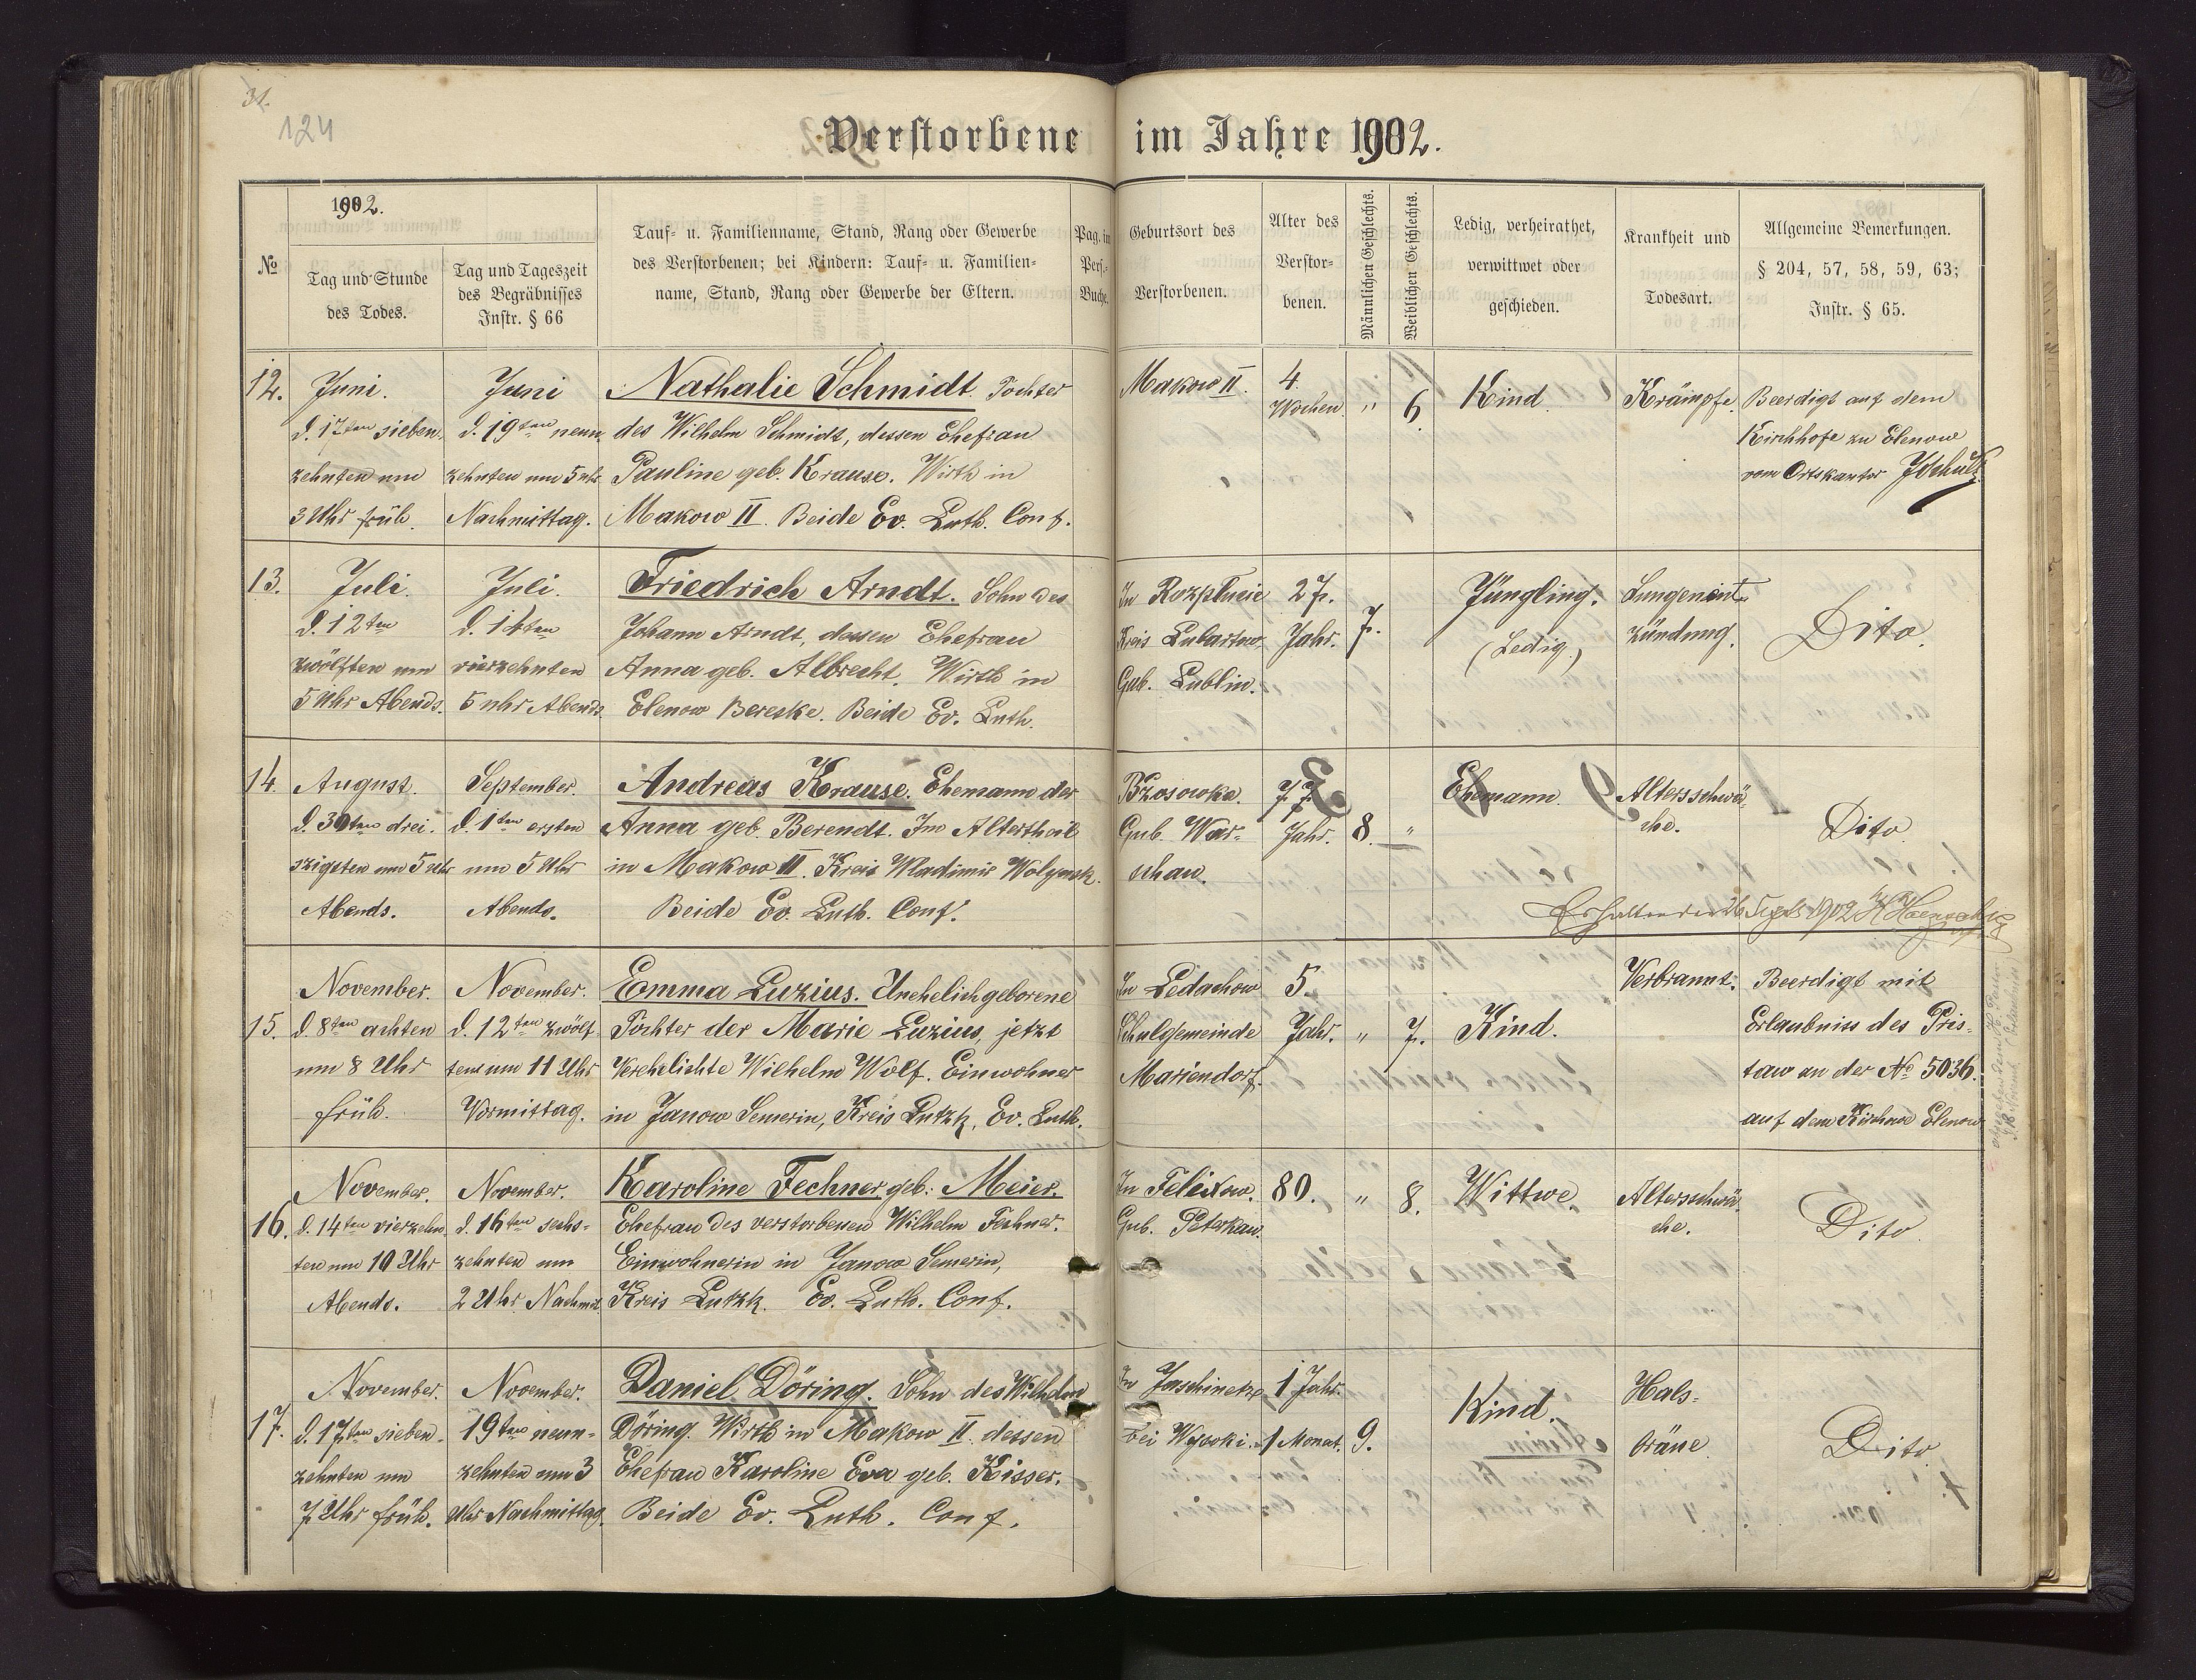 31.
124
Verstorbene im Jahre 1902.
№
1902.
Tag und Stunde
des Todes.
Tag und Tageszeit
des Begräbnisses
Instr. § 66
Tauf- u. Familienname, Stand, Rang oder Gewerbe
des Verstorbenen; bei Kindern: Tauf- u. Familien-
name, Stand, Rang oder Gewerbe der Eltern.
Pag. im
Pers.-
Buche.
Geburtsort des
Verstorbenen.
Alter des
Verstor-
benen.
Männlichen Geschlechts.
Weiblichen Geschlechts.
Ledig, verheirathet,
verwittwet oder
geschieden.
Krankheit und
Todesart.
Allgemeine Bemerkungen.
§ 204, 57, 58, 59, 63;
Instr. § 65.
12.
Juni.
d. 17ten sieben-
zehnten um
3 Uhr früh.
Juni
d. 19ten neun
zehnten um 5 uhr
Nachmittag.
Nathalie Schmidt. Tochter
des Wilhelm Schmidt, dessen Ehefrau
Pauline geb. Krause. Wirth in
Makow II. Beide Ev. Luth. Conf.
Makow II.
4
Wochen.
"
6
Kind.
Krämpfe.
Beerdigt auf dem
Kirchhofe zu Elenow
vom Ortskantor JSchulz
13.
Juli.
d. 12ten
zwölften um
5 Uhr Abends.
Juli.
d. 14ten
vierzehnten
5 uhr Abends
Friedrich Arndt. Sohn des
Johann Arndt, dessen Ehefrau
Anna geb. Albrecht. Wirth in
Elenow Bereske. Beide Ev. Luth.
In Rozplucie
Kreis Lubartow,
Gub. Lublin.
27.
Jahr.
7.
Jüngling.
(Ledig.)
Lungenent-
zündung.
Dito.
14.
August.
d. 30ten drei-
szigsten um 5 Uhr
Abends.
September.
d. 1ten ersten
um 5 Uhr
Abends.
Andreas Krause. Ehemann der
Anna geb. Berendt. Im Altertheil
in Makow II. Kreis Wladimir Wolynsk.
Beide Ev. Luth. Conf.
Brosowka.
Gub. War-
schau.
77
Jahr.
8.
"
Ehemann.
Altersschwä-
che.
Dito.
Erhalten den 26 Septb 1902
15.
November.
d. 8ten achten
um 8 Uhr
früh.
November.
d. 12ten zwölf
ten um 11 Uhr
Vormittag.
Emma Luzius. Unehelichgeborene
Tochter der Marie Luzius, jetzt
Verehelichte Wilhelm Wolf. Einwohner
in Janow Semerin, Kreis Lutzk, Ev. Luth.
In Ledochow
Schulgemeinde
Mariendorf.
5.
Jahr.
"
7.
Kind.
Verbrannt.
Beerdigt mit
Erlaubniss des Pris-
taw an der № 5036.
auf dem Kirchowe Elenow
16.
November.
d. 14ten vierzehn
ten um 10 Uhr
Abends.
November.
d. 16ten sechs-
zehnten um
2 Uhr Nachmit.
Karoline Fechner geb. Meier.
Ehefrau des verstorbenen Wilhelm Fechner.
Einwohnerin in Janow Semerin,
Kreis Lutzk. Ev. Luth. Conf.
In Felixow.
Gub. Peterkau.
80.
"
8.
Wittwe.
Altersschwä-
che.
Dito.
17.
November.
d. 17ten sieben-
zehnten um
7 Uhr früh.
November.
19ten neun-
zehnten um 3
Uhr Nachmittag.
Daniel Döring. Sohn des Wilhelm
Döring. Wirth in Makow II. dessen
Ehefrau Karoline Eva geb. Kisser.
Beide Ev. Luth. Conf.
In Jaschinetz
bei Wysoki.
1 Jahr.
1 Monat.
9.
Kind.
Hals-
bräune
Dito.